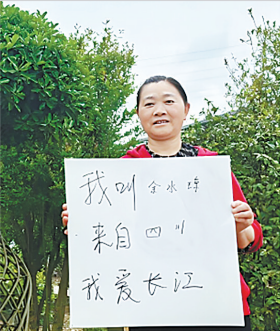 我叫余水
来自四川
我爱长江